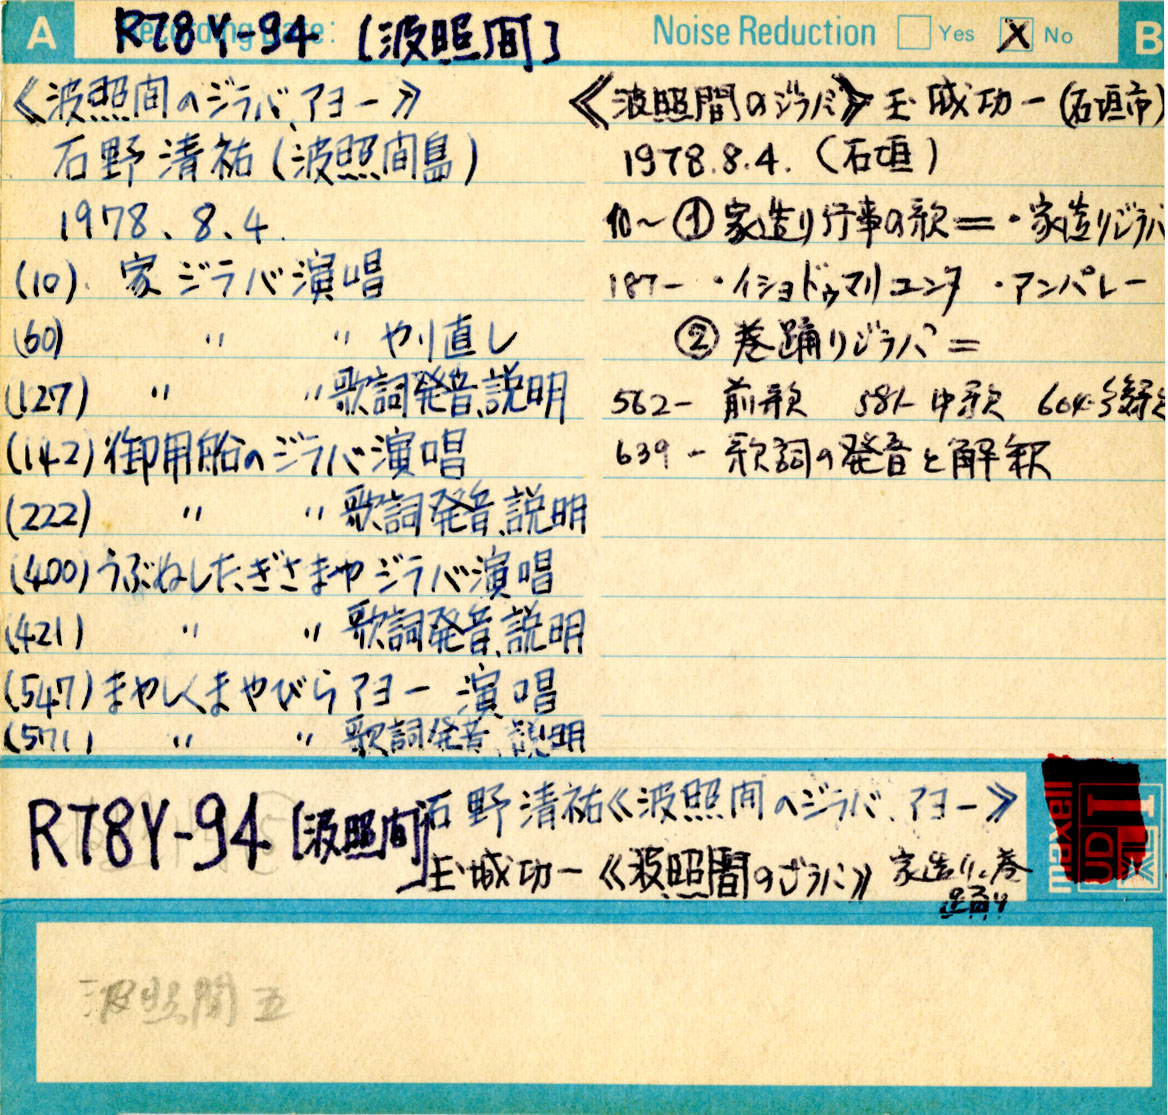 A R78Y-94 [波照間] Noise Reduction Yes X No B
《波照間のジラバ、アヨー》
石野清祐(波照間島)
1978、8、4.
(10). 家ジラバ演唱
(60) 〃 〃 やり直し
(127) 〃 〃歌詞発音、説明
(142)御用船のジラバ演唱
(222) 〃 〃 歌詞発音、説明
(400)うぶねしたぎさまやジラバ演唱
(421) 〃 〃 歌詞発音、説明
(547)まやしくまやびらアヨー 演唱
(571) 〃 〃 歌詞発音、説明
《波照間のジラバ》玉城功一(石垣市)
1978.8.4.(石垣)
10〜①家造り行事の歌=・家造りジラバ
187- ・イショドゥマリユンタ ・アンパレー
②巻踊りジラバ=
562- 前歌 581-中歌 604-後歌
639-歌詞の発音と解釈
R78Y-94 [波照間]
石野清祐《波照間のジラバ、アヨー》
玉城功一《波照間のジラバ》家造り、巻
踊り
maxell UD
波照間五